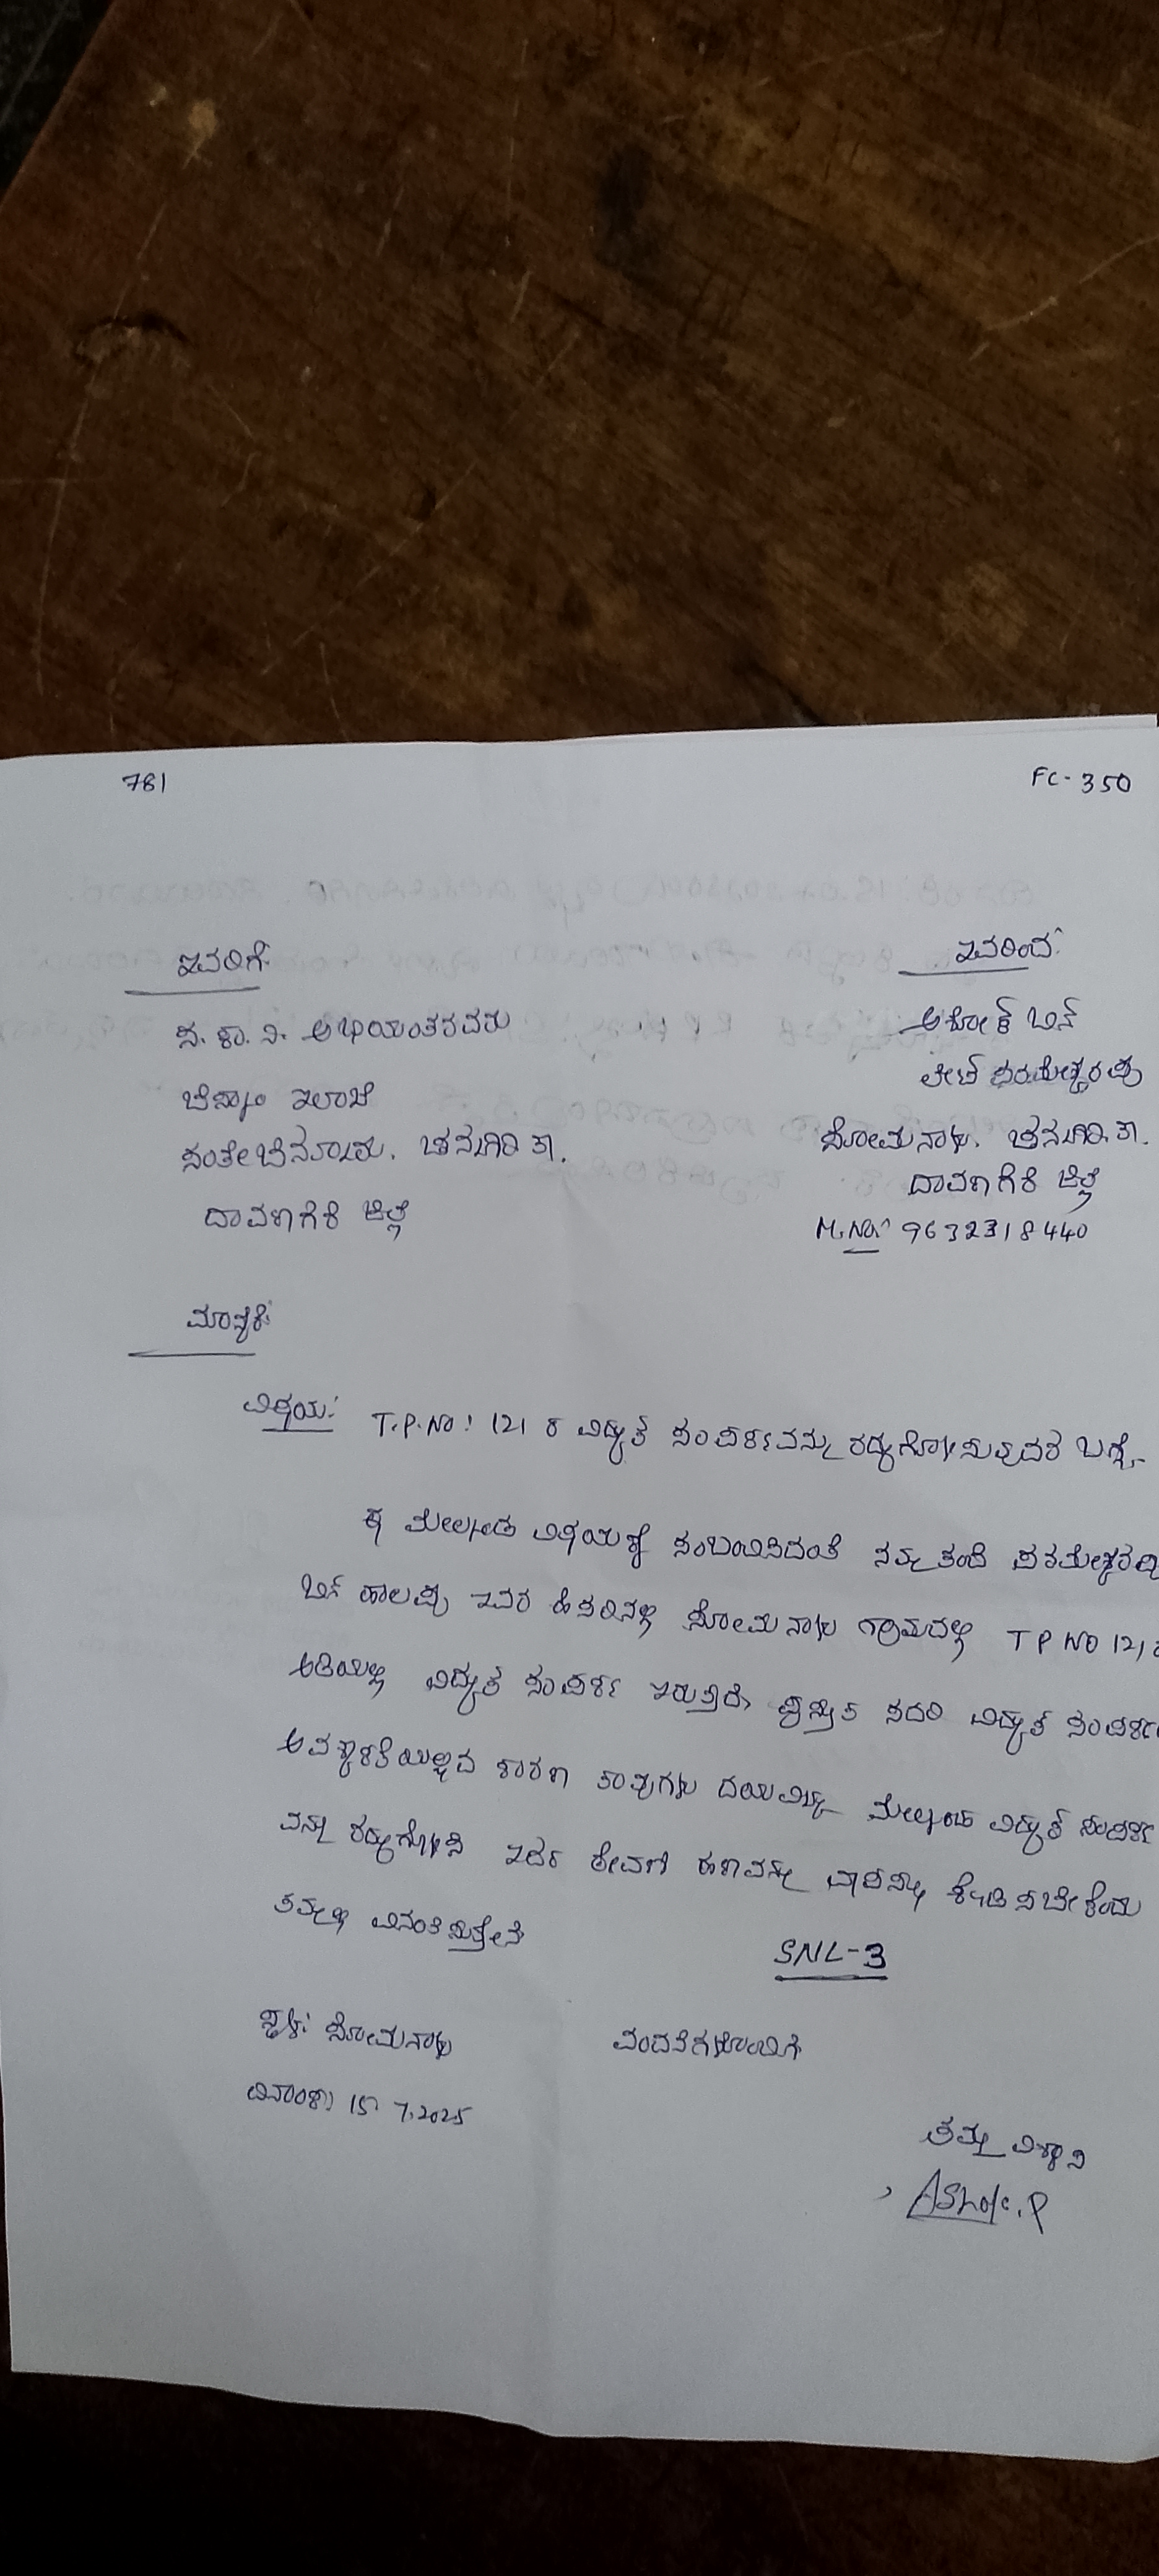 781
FC-350
ಇವರಿಗೆ:
ಸ. ಕಾ. ನಿ. ಅಭಿಯಂತರವರು
ಬೆಸ್ಕಾಂ ಇಲಾಖೆ
ಸಂತೇಬೆನ್ನೂರು. ಚನ್ನಗಿರಿ ತಾ.
ದಾವಣಗೆರೆ ಜಿಲ್ಲೆ
ಇವರಿಂದ:
ಅಶೋಕ್ ಬಿನ್
ಲೇಟ್ ಪರಮೇಶ್ವರಪ್ಪ
ಸೋಮನಾಳು. ಚನ್ನಗಿರಿ. ತಾ.
ದಾವಣಗೆರೆ ಜಿಲ್ಲೆ
M.No: 9632318440
ಮಾನ್ಯರೆ:
ವಿಷಯ: T.P.NO: 121 ರ ವಿದ್ಯುತ್ ಸಂಪರ್ಕವನ್ನು ರದ್ದುಗೊಳಿಸುವುದರ ಬಗ್ಗೆ-
ಈ ಮೇಲ್ಕಂಡ ವಿಷಯಕ್ಕೆ ಸಂಬಂಧಿಸಿದಂತೆ ನಮ್ಮ ತಂದೆ ಪರಮೇಶ್ವರಪ್ಪ
ಬಿನ್ ಹಾಲಪ್ಪ ಇವರ ಹೆಸರಿನಲ್ಲಿ ಸೋಮನಾಳು ಗ್ರಾಮದಲ್ಲಿ T P NO 121 ರ
ಅಡಿಯಲ್ಲಿ ವಿದ್ಯುತ್ ಸಂಪರ್ಕ ಇರುತ್ತದೆ, ಪ್ರಸ್ತುತ ಸದರಿ ವಿದ್ಯುತ್ ಸಂಪರ್ಕ
ಅವಶ್ಯಕತೆಯಿಲ್ಲದ ಕಾರಣ ತಾವುಗಳು ದಯವಿಟ್ಟು ಮೇಲ್ಕಂಡ ವಿದ್ಯುತ್ ಸಂಪರ್ಕ
ವನ್ನು ರದ್ದುಗೊಳಿಸಿ ಇದರ ಠೇವಣಿ ಹಣವನ್ನು ವಾಪಸ್ಸು ಕೊಡಿಸಬೇಕೆಂದು
ತಮ್ಮಲ್ಲಿ ವಿನಂತಿಸುತ್ತೇನೆ
SNL-3
ಸ್ಥಳ: ಸೋಮನಾಳು
ವಂದನೆಗಳೊಂದಿಗೆ
ದಿನಾಂಕ: 15 7.2025
ತಮ್ಮ ವಿಶ್ವಾಸಿ
Ashok.P